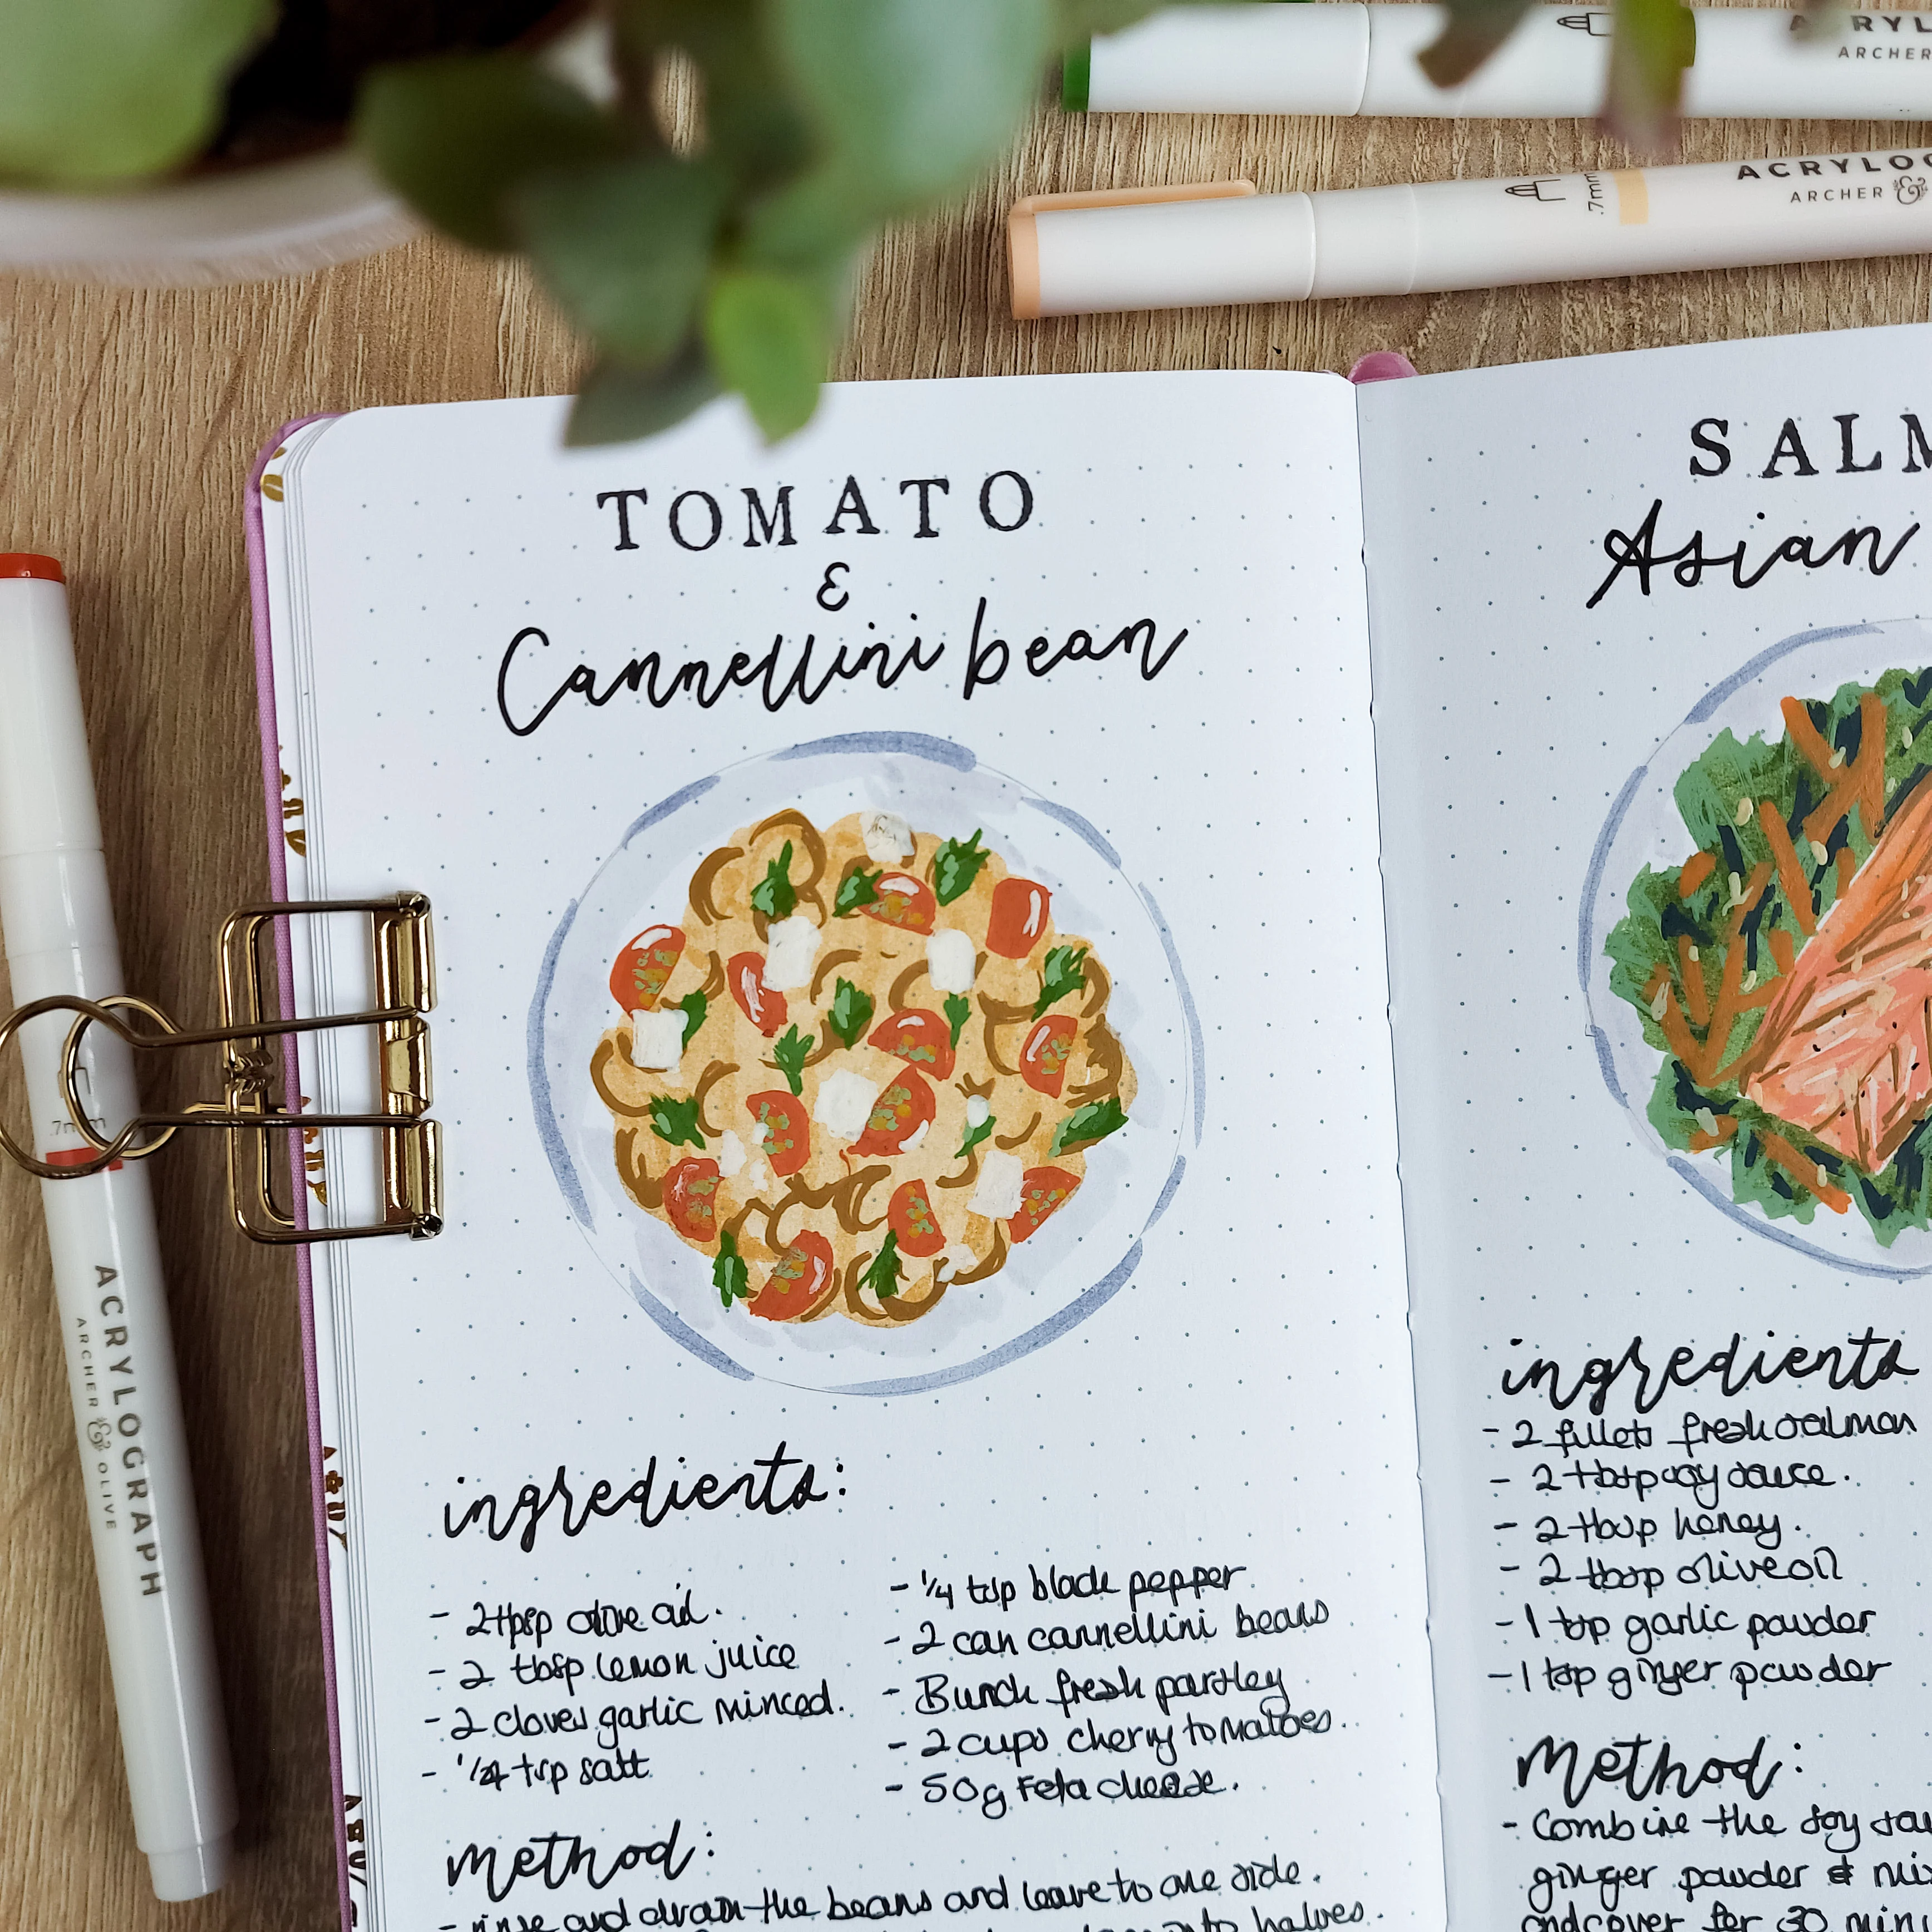 ACRYL
ARCHER
.7mm
ACRYLOG
ARCHER &
TOMATO
&
Cannellini bean
ingredients:
- 2 tbsp olive oil.
- 2 tbsp lemon juice
- 2 cloves garlic minced.
- 1/4 tsp salt
- 1/4 tsp black pepper
- 2 can cannellini beans
- Bunch fresh parsley
- 2 cups cherry tomatoes.
- 50g Feta cheese.
method:
- rinse and drain the beans and leave to one side.
halves.
SALM
Asian
ingredients
- 2 fillets fresh salmon
- 2 tbsp soy sauce.
- 2 tbsp honey.
- 2 tbsp olive oil
- 1 tsp garlic powder
- 1 tsp ginger powder
Method:
- Combine the soy sau
ginger powder & mix
and cover for 30 minu
.7mm
ACRYLOGRAPH
ARCHER & OLIVE